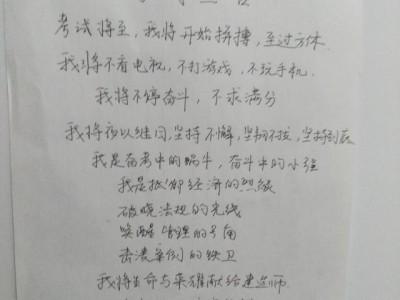 考试将至，我将开始拼搏，至过方休
我将不看电视，不打游戏，不玩手机.
我将不停奋斗，不求满分
我将夜以继日，坚持不懈，坚韧不拔，坚持到底
我是备考中的蜗牛，奋斗中的小强
我是抵御经济的烈焰
破晓法规的光线
唤醒管理的号角
击溃案例的铁卫
我将生命与荣耀献给建造师.